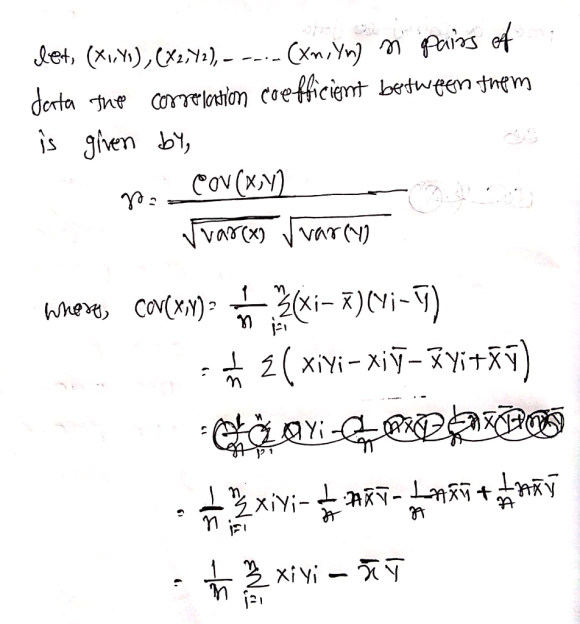 let, (X1,Y1),(X2,Y2), - - - - - - (Xn,Yn) n pairs of
data the correlation coefficient between them
is given by,
r = Cov(X,Y) / √var(X) √var(Y)
where, Cov(X,Y) = 1/n Σ_{i=1}^{n} (Xi - X̄)(Yi - Ȳ)
= 1/n Σ( XiYi - XiȲ - X̄Yi + X̄Ȳ)
= 1/n Σ_{i=1}^{n} XiYi - 1/n nX̄Ȳ - 1/n nX̄Ȳ + 1/n nX̄Ȳ
= 1/n Σ_{i=1}^{n} XiYi - X̄Ȳ